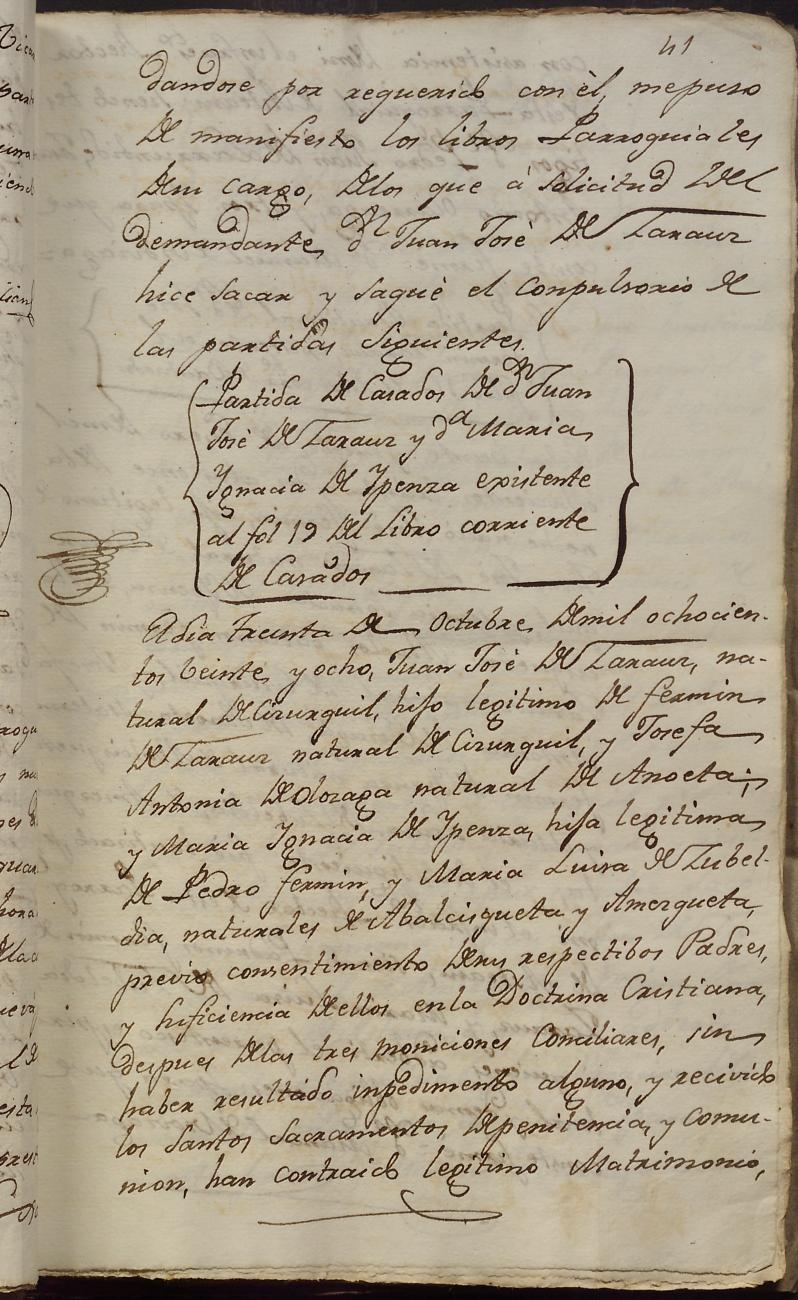 41
dandose por requerido con èl, mepuso
de manifiesto los libros Parroquiales
desu cargo, delos que à solicitud del
demandante, dn Juan Josè de Laraur
hice sacar y saquè el conpulsorio de
las partidas siguientes.
Partida de Casados de dn Juan
Josè de Laraur y da Maria
Ygnacia de Ypenza existente
al fol 19 del Libro corriente
de Casados
Adia treinta de Octubre, demil ochocien-
tos beinte, y ocho, Juan Josè de Laraur, na-
tural de Cizurquil, hijo legitimo de fermin
de Laraur natural de Cizurquil, y Josefa
Antonia de Olozaga natural de Anoeta;
y Maria Ygnacia de Ypenza, hija legitima
de Pedro fermin, y Maria Luisa de Zubel-
dia, naturales de Abalcisqueta y Amezqueta,
previo consentimiento desus respectibos Padres,
y suficiencia deellos enla Doctrina Cristiana,
despues delas tres moniciones Conciliares, sin
haber resultado inpedimento alguno, y recivido
los Santos Sacramentos depenitencia, y comu-
nion, han contraido legitimo Matrimonio,